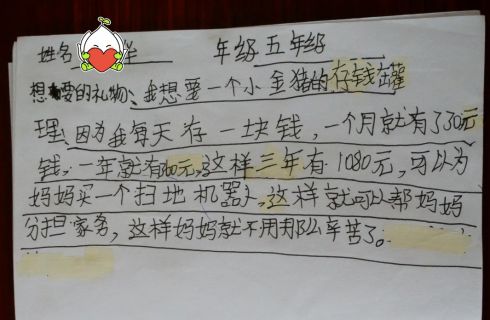 姓名 年级五年级
想要的礼物:我想要一个小金猪的存钱罐
理:因为我每天存一块钱,一个月就有了30元
钱,一年就有360元,这样三年有1080元,可以为
妈妈买一个扫地机器人,这样就可以帮妈妈
分担家务,这样妈妈就不用那么辛苦了。